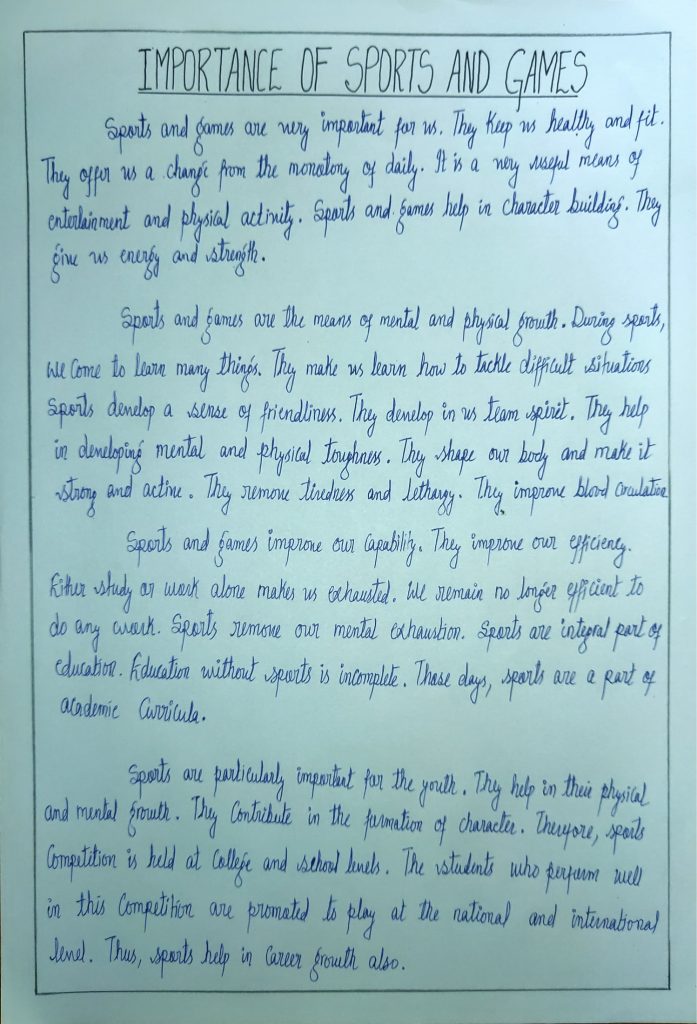 IMPORTANCE OF SPORTS AND GAMES
Sports and games are very important for us. They Keep us healthy and fit.
They offer us a change from the monotony of daily. It is a very useful means of
entertainment and physical activity. Sports and games help in character building. They
give us energy and strength.
Sports and games are the means of mental and physical growth. During sports,
We Come to learn many things. They make us learn how to tackle difficult situations
Sports develop a sense of friendliness. They develop in us team spirit. They help
in developing mental and physical toughness. They shape our body and make it
strong and active. They remove tiredness and lethargy. They improve blood Circulation
Sports and games improve our Capability. They improve our efficiency.
Either study or work alone makes us exhausted. We remain no longer efficient to
do any work. Sports remove our mental exhaustion. Sports are integral part of
Education. Education without sports is incomplete. These days, sports are a part of
academic Curricula.
Sports are particularly important for the youth. They help in their physical
and mental growth. They Contribute in the formation of character. Therfore, sports
Competition is held at College and school levels. The students who perform well
in this Competition are promoted to play at the national and international
level. Thus, sports help in Career growth also.